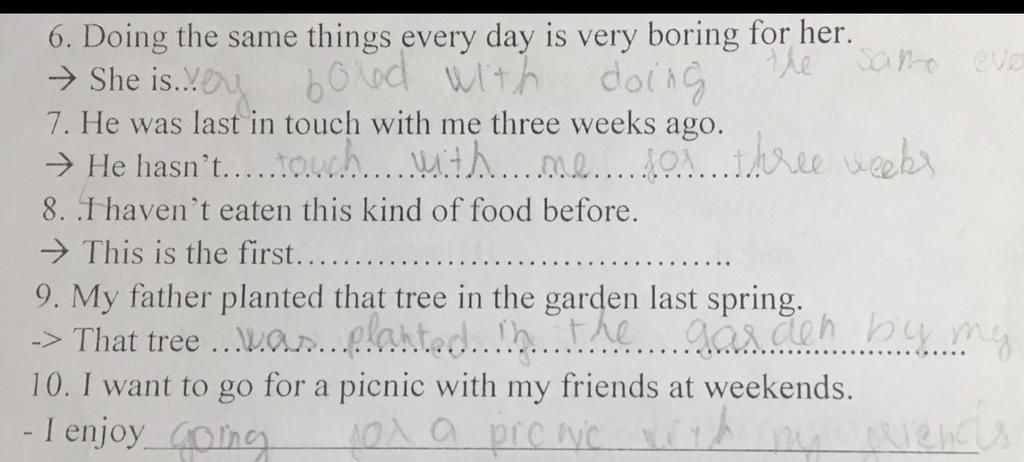 6. Doing the same things every day is very boring for her.
→ She is...very bored with doing the same eve
7. He was last in touch with me three weeks ago.
→ He hasn't.....touch.....with....me.....for....three weeks
8. .I haven't eaten this kind of food before.
→ This is the first..........................................
9. My father planted that tree in the garden last spring.
-> That tree ...was...planted...in...the garden by my
10. I want to go for a picnic with my friends at weekends.
- I enjoy going for a picnic with my friends